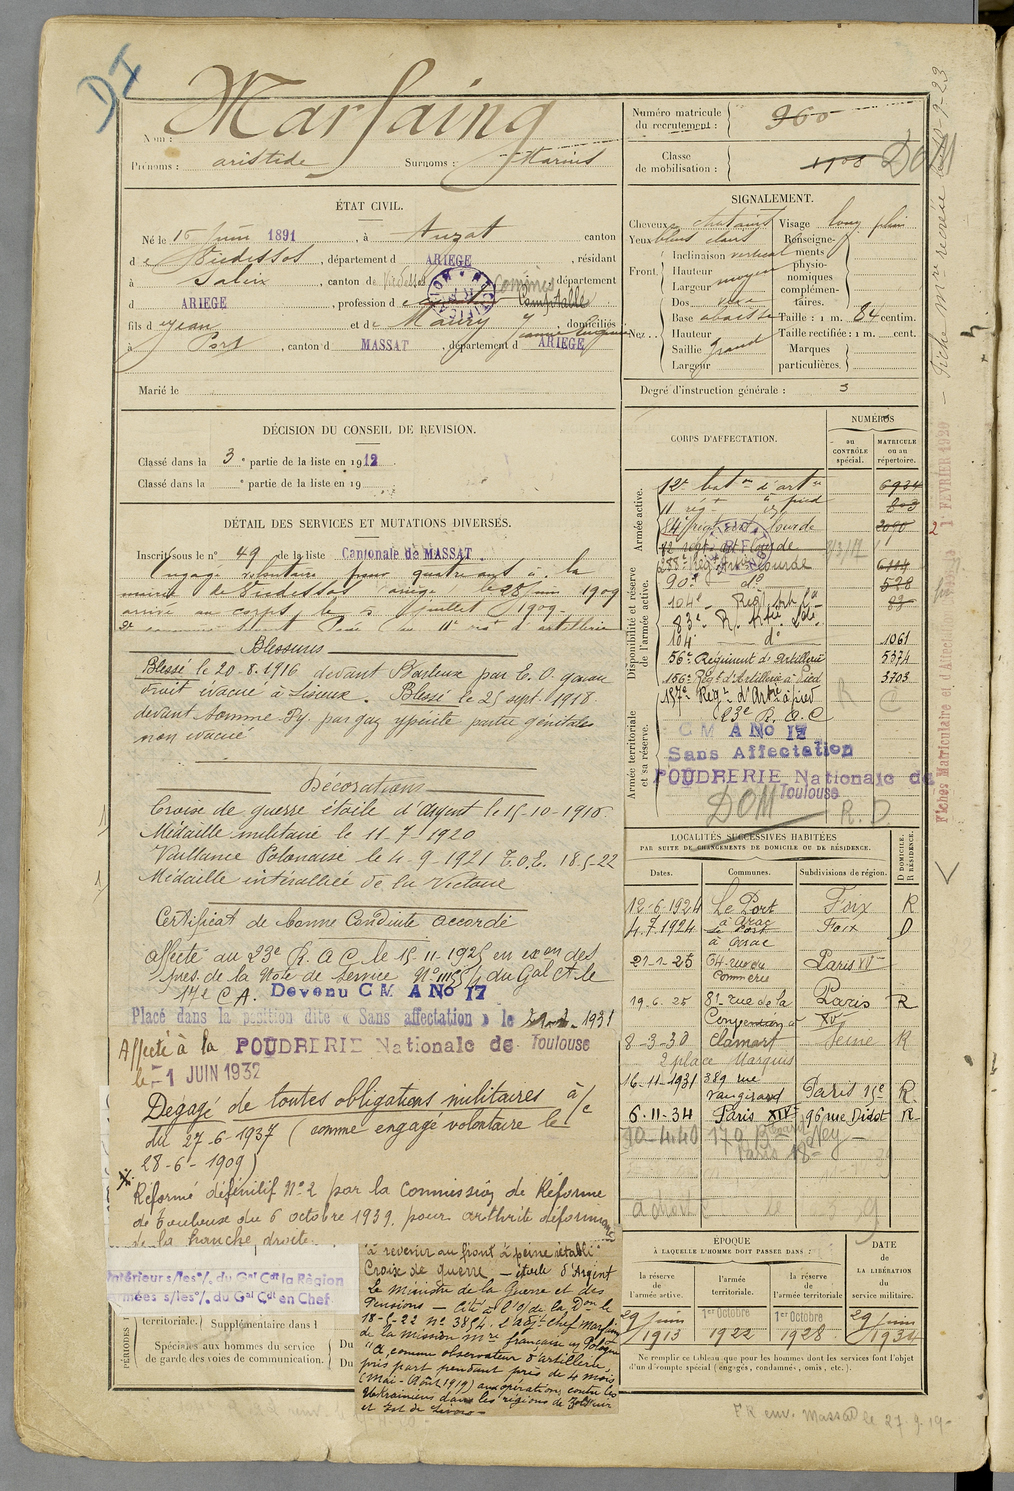 DI
Marfaing
Nom :
Prénoms : aristide Surnoms : Marius
Numéro matricule du recrutement : 960
Classe de mobilisation : 1908 DOM
ÉTAT CIVIL.
Né le 15 Juin 1891, à Auzat canton
de Vicdessos, département d ARIEGE, résidant
à Saleix, canton de Vicdessos, département
d ARIEGE, profession de Commis Comptable
fils d Jean et de Maury Jeanne domiciliés
à Port, canton d MASSAT, département d ARIEGE
Marié le
SIGNALEMENT.
Cheveux chatains Visage long plein
Yeux bleus clairs
Renseignements physionomiques complémentaires.
Front. Inclinaison vertical
Hauteur moyen
Largeur
Nez. Dos
Base abaissée
Hauteur
Saillie grand
Largeur
Taille : 1 m. 84 centim.
Taille rectifiée : 1 m. cent.
Marques particulières.
Degré d'instruction générale : 3
DÉCISION DU CONSEIL DE REVISION.
Classé dans la 3e partie de la liste en 1912
Classé dans la e partie de la liste en 19
DÉTAIL DES SERVICES ET MUTATIONS DIVERSES.
Inscrit sous le no 49 de la liste Cantonale de MASSAT
Engagé volontaire pour quatre ans à la
mairie de Vicdessos Ariège le 28 juin 1909
arrivé au corps le 2 juillet 1909.
Passé au 11e rgt d'artillerie
Blessures
Blessé le 20-8-1916 devant par E. O. genou
droit évacué à Lisieux. Blessé le 25 sept. 1918
devant Somme-Py. par gaz ypérite partie génitales
non évacué
Décorations
Croix de guerre étoile d'Argent le 15-10-1918
Médaille militaire le 11-7-1920
Vaillance Polonaise le 4-9-1921 T.O.E. 18.5-22
Médaille interalliée de la Victoire
Certificat de bonne Conduite accordé
affecté au 23e R. A. C le 15-11-1925 en exon des
pres. de la Note de Service No du Gal Ct le
17e C A. Devenu C M A No 17
Placé dans la position dite « Sans affectation » le 1931
Affecté à la POUDRERIE Nationale de Toulouse
le -1 JUIN 1932
Dégagé de toutes obligations militaires à/c
du 27-6-1937 (comme engagé volontaire le
28-6-1909)
Réformé définitif No 2 par la Commission de Réforme
de Toulouse du 6 octobre 1939. pour arthrite déformante
de la hanche droite.
Intérieur s/les o/. du Gal Cdt la Région
Armées s/les o/. du Gal Cdt en Chef
territoriale. Supplémentaire dans l
Spéciales aux hommes du service
de garde des voies de communication.
Du
Du
PÉRIODES
à revenir au front à peine rétabli
Croix de guerre - étoile d'Argent
Le Ministre de la Guerre et des
Pensions - Cité à l'o/ de la Don le
18-5-22 No 38/4. l'adjt-chef Marfaing
de la Mission Mre française en Pologne
"A, comme observateur d'artillerie,
pris part pendant près de 4 mois
(Mai - Août 1919) aux opération contre les
Ukrainiens dans les régions de
et Est de
CORPS D'AFFECTATION.
NUMÉROS
au CONTRÔLE spécial.
MATRICULE ou au répertoire.
Armée active.
Disponibilité et réserve de l'armée active.
Armée territoriale et sa réserve.
12e baton d'artie 6934
11 rég. à pied 803
84 régt art lourde 2090
82 régt art lourde
288e Régt lourde 6114
90e do 528
104e Régt 83
83e R. Atie Lde
104 do 1061
56e Régiment d'Artillerie 5374
156e Régt d'Artillerie à Pied 3703
187e Régt d'Artie à pied R C
23e R. A. C
C M A No 17
Sans Affectation
POUDRERIE Nationale de Toulouse
DOM R. D
LOCALITÉS SUCCESSIVES HABITÉES
PAR SUITE DE CHANGEMENTS DE DOMICILE OU DE RÉSIDENCE.
Dates. Communes. Subdivisions de région. D DOMICILE. R RÉSIDENCE.
12-6-1924 Le Port à Arac Foix R
4.7.1924 Le Port à Arac Foix D
21-1-25 64 rue du Commerce Paris XVe
19.6.25 81 rue de la Convention Paris XVe R
8-3-30 Clamart 2 place Marquis Seine R
16-11-1931 389 rue Vaugirard Paris 15e R.
6.11-34 Paris XIVe 96 rue Didot R
30-4.40 170 Bd Ney - Paris 18e
ÉPOQUE
À LAQUELLE L'HOMME DOIT PASSER DANS :
la réserve de l'armée active. l'armée territoriale. la réserve de l'armée territoriale
DATE de LA LIBÉRATION du service militaire.
29 juin 1913
1er Octobre 1922
1er Octobre 1928
29 juin 1934
Ne remplir ce tableau que pour les hommes dont les services font l'objet
d'un décompte spécial (engagés, condamnés, omis, etc.).
FR env. Massat le 27-9-19-
Fiches Matriculaire et d'Affectation 1er FEVRIER 1920